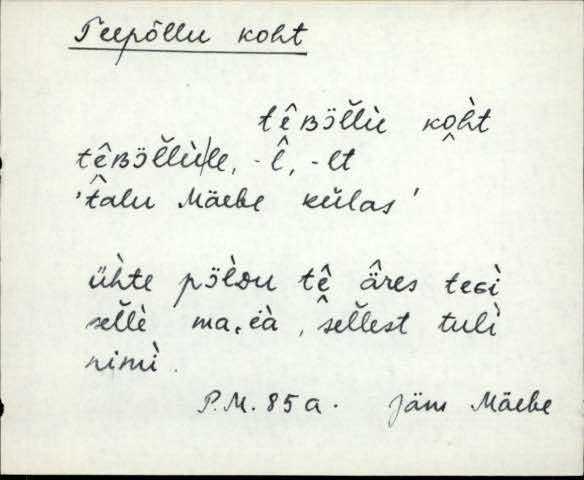 Teepõllu koht
têʙɔ̈l̆lù kòh̀t
têʙɔ̈l̆lùle, -l̂, -lt
'talu Mäebe külas'
üh̀te pɔ̈l̀ᴅu tê âres teɢì
sel̆lè ma,ėà, sel̆lest tulì
nimì.
P.M. 85 a. Jäm Mäebe